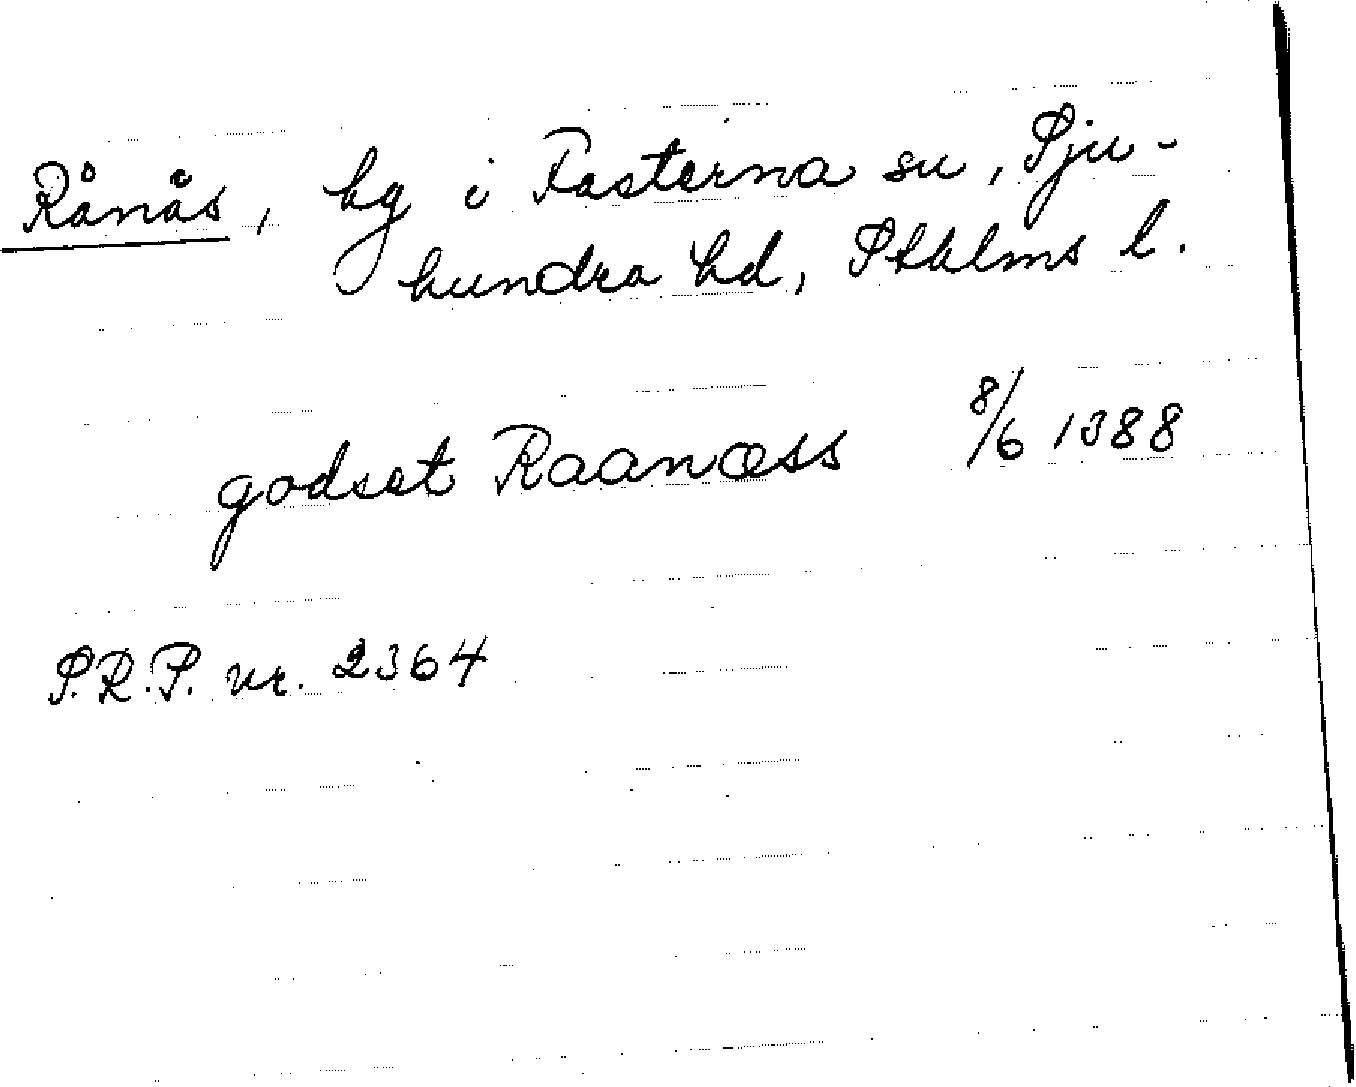 Rånås, hg i Fasterna sn, Sju-
hundra hd, Sthlms l.
godset Raanæss 8/6 1388
S.R.P. nr. 2364